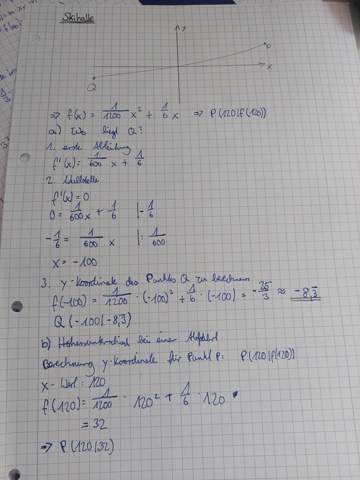 Skihalle
y
x
Q
P
=> f(x) = 1/1200 x² + 1/6 x => P(120|f(120))
a) Wo liegt Q?
1. erste Ableitung
f'(x) = 1/600 x + 1/6
2. Nullstelle
f'(x) = 0
0 = 1/600 x + 1/6 |-1/6
-1/6 = 1/600 x |: 1/600
x = -100
3. y-Koordinate des Punktes Q zu berechnen
f(-100) = 1/1200 · (-100)² + 1/6 · (-100) = -25/3 ≈ -8,3
Q(-100|-8,3)
b) Höhenunterschied bei einer Abfahrt
Berechnung y-Koordinate für Punkt P: P(120|f(120))
x-Wert: 120
f(120) = 1/1200 · 120² + 1/6 · 120
= 32
=> P(120|32)